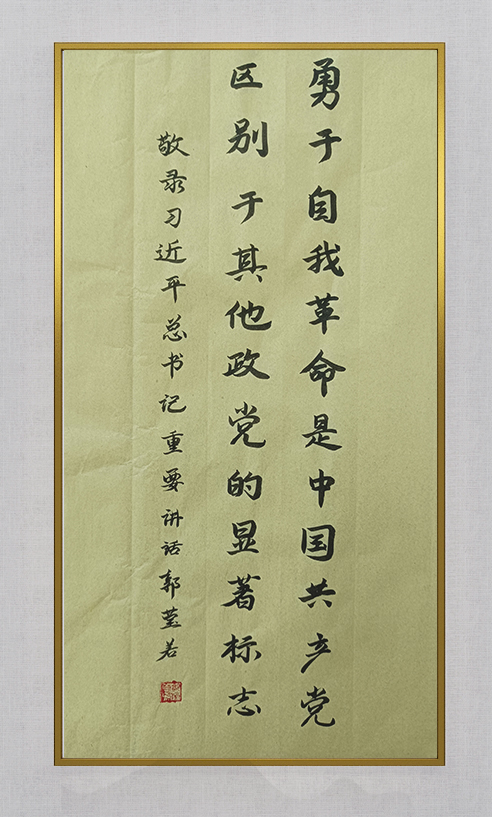 勇于自我革命是中国共产党
区别于其他政党的显著标志
敬录习近平总书记重要讲话郭莹若